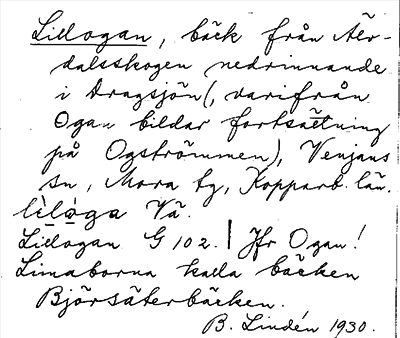 Lillogan, bäck från Äer-
dalsskogen nedrinnande
i Dragsjön (, varifrån
Ogan bildar fortsättning
på Ogströmmen), Venjans
sn, Mora tg, Kopparb. län.
lìlòga Vä.
Lillogan G 102. | Jfr Ogan!
Limaborna kalla bäcken
Björsäterbäcken.
B. Lindén 1930.